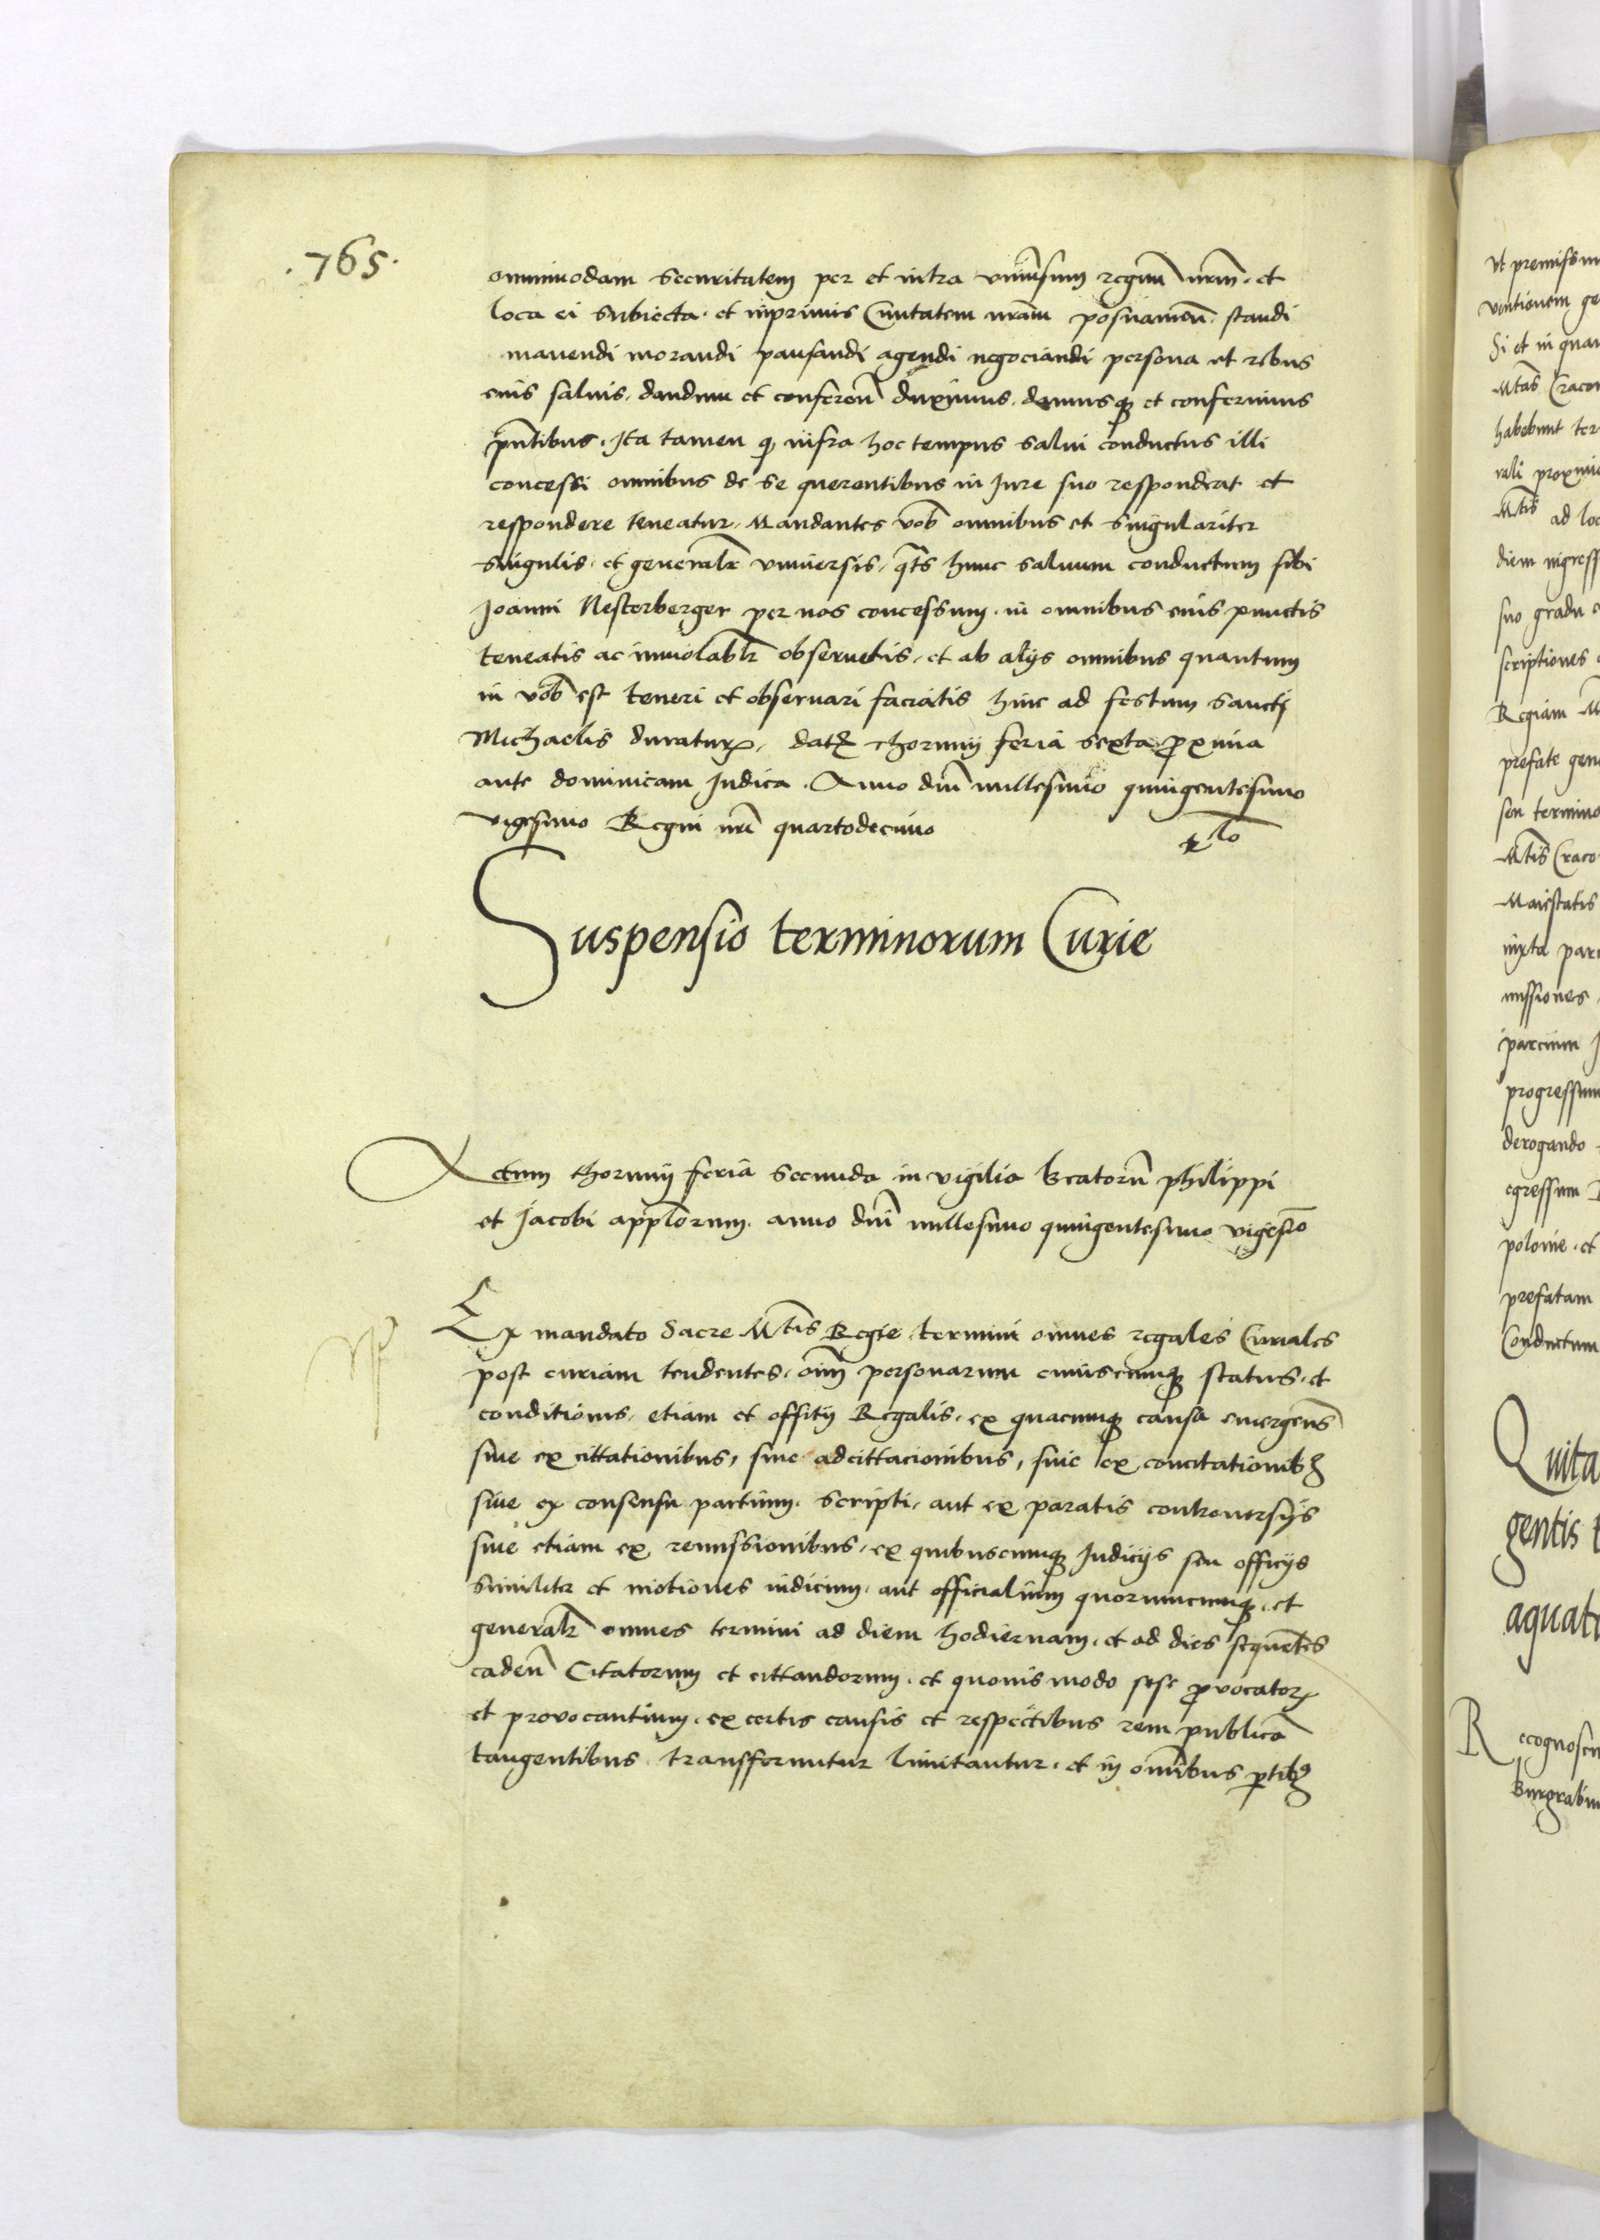 .765.
omnimodam securitatem per et intra univsum regnu nrm. et
loca ei subiecta. et inprimis Civitatem nram posnanien. standi
manendi morandi pausandi agendi negociandi persona et rebus
eius salvis. dandum et conferen duximus. damusq et conferimus
pntibus. Ita tamen q infra hoc tempus salvi conductus illi
concessi omnibus de se querentibus in Iure suo respondeat et
respondere teneatur. Mandantes vob omnibus et singulariter
singulis. et generalr universis. qts hunc salvum conductum sibi
Joanni Nesterberger per nos concessum. in omnibus eius punctis
teneatis ac inviolablr observetis. et ab alijs omnibus quantum
in vob est teneri et observari faciatis hinc ad festum sancti
Michaelis duratur. dat thorunij feria sexta proxima
ante dominicam Iudica. Anno dni millesimo quingentesimo
vigesimo Regni nri quartodecimo
Suspensio terminorum Curie
Actum thorunij feria secunda in vigilia beatoru philippi
et Jacobi applorum. anno dni millesimo quingentesimo vigesio
Ex mandato Sacre Mtis Regie termini omnes regales Curiales
post curiam tendentes. oim personarum cuiuscumq status. et
conditionis. etiam et offitij Regalis. ex quacumq causa emergens
sive ex cittationibus, sive adcittacionibus, sive ex concitationib
sive ex consensu partium. scripti. aut ex paratis controversijs
sive etiam ex remissionibus. ex quibuscumq Iudicijs seu officijs
similiter et motiones iudicium. aut officialium quorumcumq. et
generalr omnes termini ad diem hodiernam. et ad dies sequentes
caden Citatorum et cittandorum. et quovis modo sese provocator
et provocantium. ex certis causis et respectibus rem publica
tangentibus transfferuntur limitantur. et in omnibus ptib
ut premissum
Si et in quan
Mtas Craco
habebunt ter
Mtis ad loc
diem ingress
suo gradu
scriptiones
Regiam M
prefate gen
seu termino
Mtis Craco
Maiestatis
iuxta par
missiones
parcium
progressum
derogando
egressum
polonie. et
prefatam
Conductum
Quita
gentis
aquat
Recognoscim
Burgrabiu